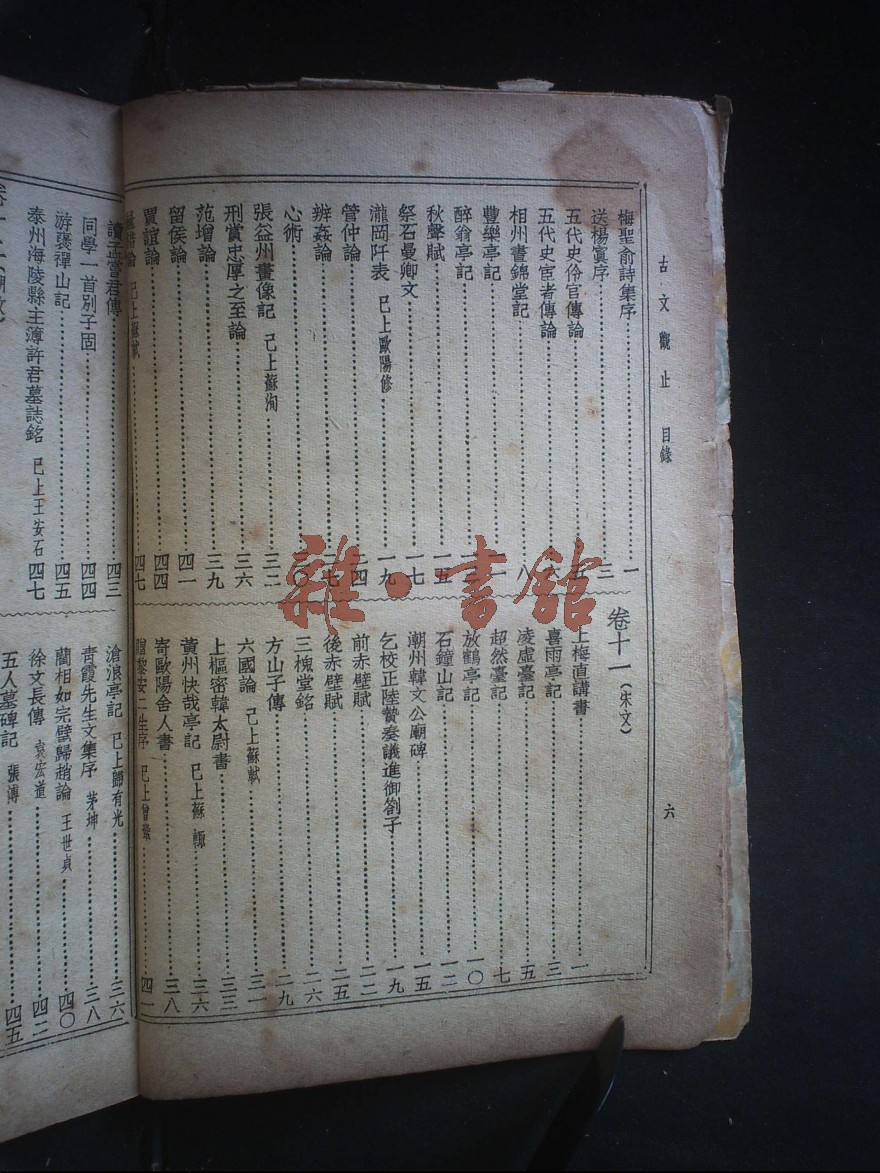 古文觀止 目錄
六
梅聖俞詩集序 一
送楊寘序 三
五代史伶官傳論 五
五代史宦者傳論 六
相州晝錦堂記 八
豐樂亭記 一一
醉翁亭記 一三
秋聲賦 一五
祭石曼卿文 一七
瀧岡阡表 已上歐陽修 一九
管仲論 二四
辨姦論 二七
心術 三〇
張益州畫像記 已上蘇洵 三二
刑賞忠厚之至論 三六
范增論 三九
留侯論 四一
賈誼論 四四
鼂錯論 已上蘇軾 四七
卷十一(宋文)
上梅直講書 一
喜雨亭記 三
凌虛臺記 五
超然臺記 七
放鶴亭記 一〇
石鐘山記 一二
潮州韓文公廟碑 一五
乞校正陸贄奏議進御劄子 一九
前赤壁賦 二二
後赤壁賦 二五
三槐堂銘 二六
方山子傳 二九
六國論 已上蘇軾 三一
上樞密韓太尉書 三三
黃州快哉亭記 已上蘇轍 三六
寄歐陽舍人書 三八
贈黎安二生序 已上曾鞏 四一
讀孟嘗君傳 四三
同學一首別子固 四四
游褒禪山記 四五
泰州海陵縣主簿許君墓誌銘 已上王安石 四七
滄浪亭記 已上歸有光 三六
青霞先生文集序 茅坤 三八
藺相如完璧歸趙論 王世貞 四〇
徐文長傳 袁宏道 四二
五人墓碑記 張溥 四五
雜·書館